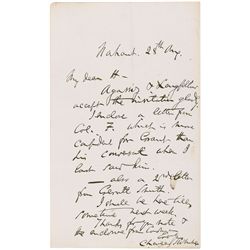 Nahant 28th Aug.
My dear H—
Agassiz & Longfellow
accept the invitation gladly.
I enclose a letter from
Col. F. which is more
confident for Grant than
his conversatn when I
last saw him.
— also a 2nd letter
from Gerritt Smith
I shall be here till
sometime next week.
Thanks for yr note &
the enclosure from
Charles Sumner